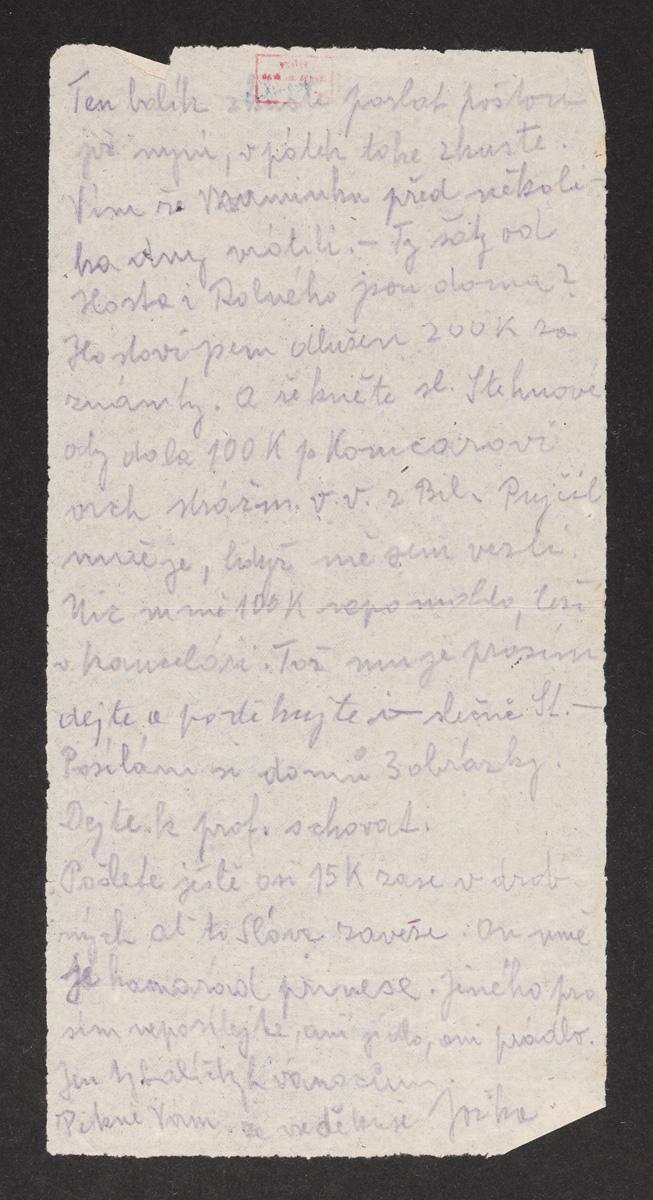 Ten balík zkuste poslat poštou
již nyní, v pátek také zkuste.
Vím že Maminku před několi-
ka dny vrátili. – Ty šáty od
Hosta i Rolného jsou doma?
Hostovi jsem dlužen 200 K za
známky. A řekněte sl. Stehnové
aby dala 100 K p Komcarovi
vrch strážm. v. v. z Bíl. Pujčil
mně je, když mě sem vezli.
Nic mně 100 K nepomohlo, leží
v kanceláři. Tož mu je prosím
dejte a poděkujte i slečně St. –
Posílám si domů 3 obrázky.
Dejte k prof. schovat.
Pošlete ještě asi 15 K zase v drob
ných ať to Sláva zaveze. On mně
je kamarád přinese. Jiného pro
sím neposílejte, ani jídlo, ani prádlo.
Jen ty balíčky k vánocům.
Pěkně Vám Joška